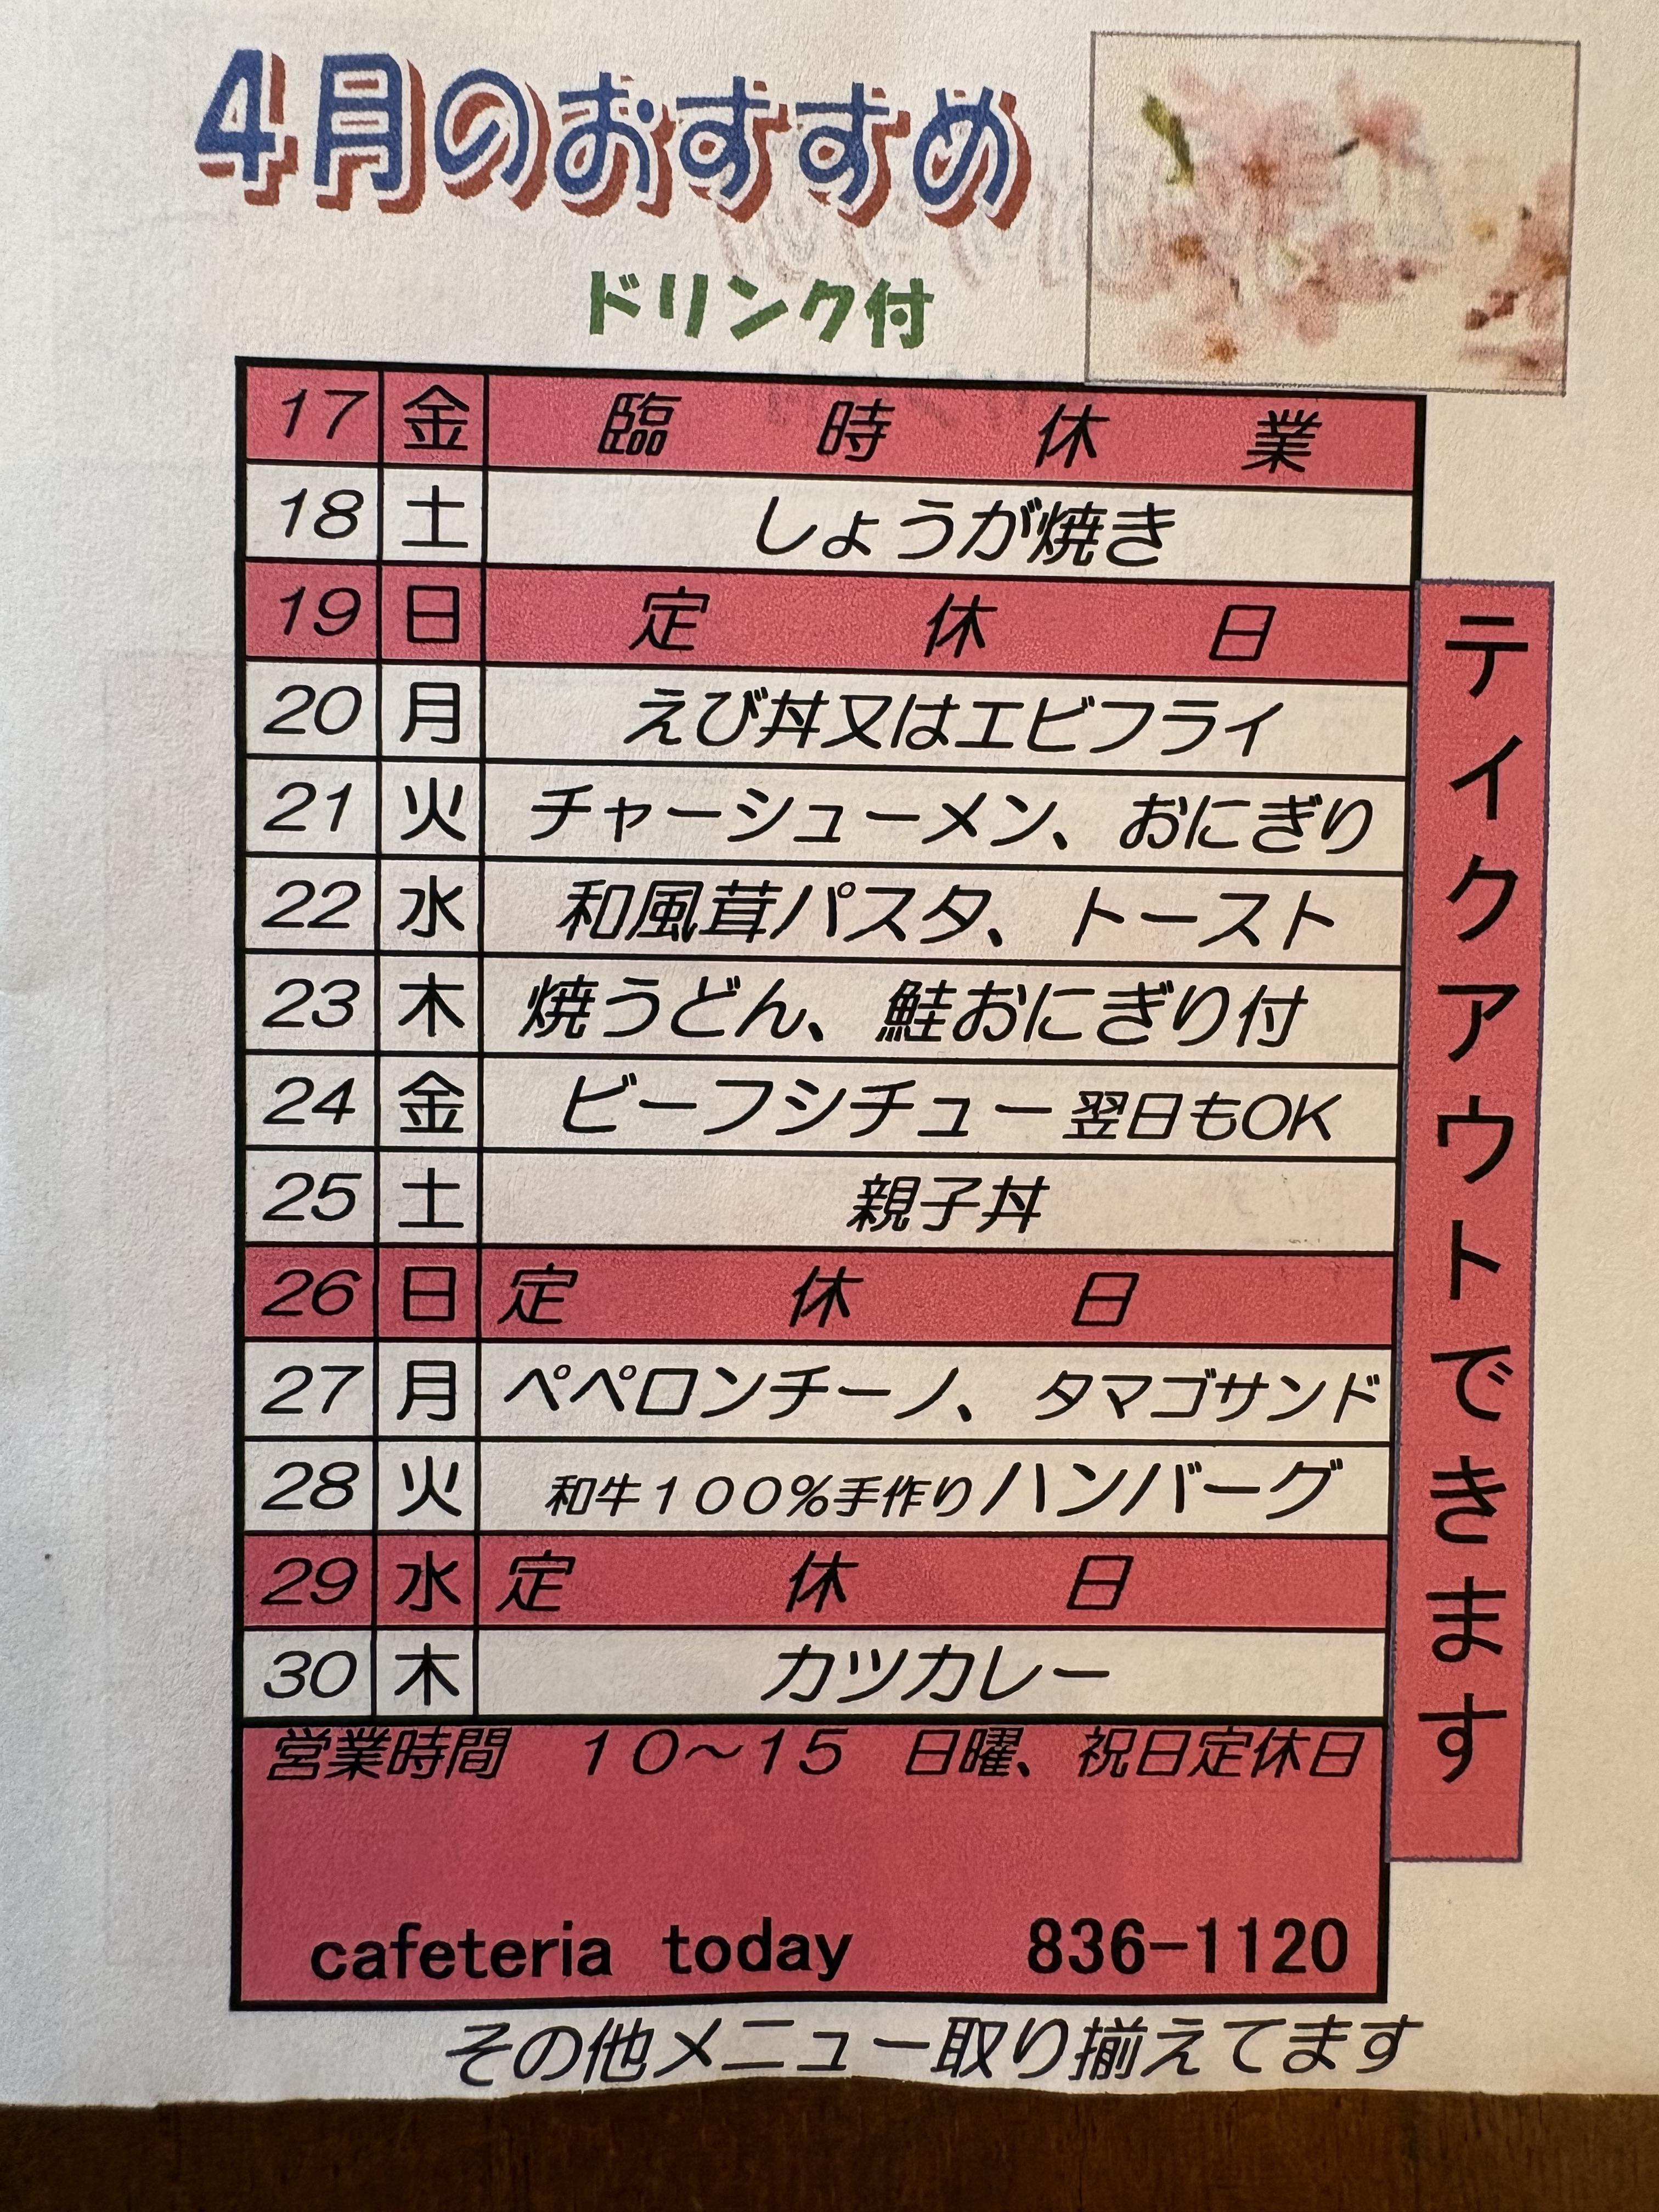 4月のおすすめ
ドリンク付
17 金 臨時休業
18 土 しょうが焼き
19 日 定休日
20 月 えび丼又はエビフライ
21 火 チャーシューメン、おにぎり
22 水 和風茸パスタ、トースト
23 木 焼うどん、鮭おにぎり付
24 金 ビーフシチュー翌日もOK
25 土 親子丼
26 日 定休日
27 月 ペペロンチーノ、タマゴサンド
28 火 和牛100%手作りハンバーグ
29 水 定休日
30 木 カツカレー
テイクアウトできます
営業時間 10～15 日曜、祝日定休日
cafeteria today 836-1120
その他メニュー取り揃えてます